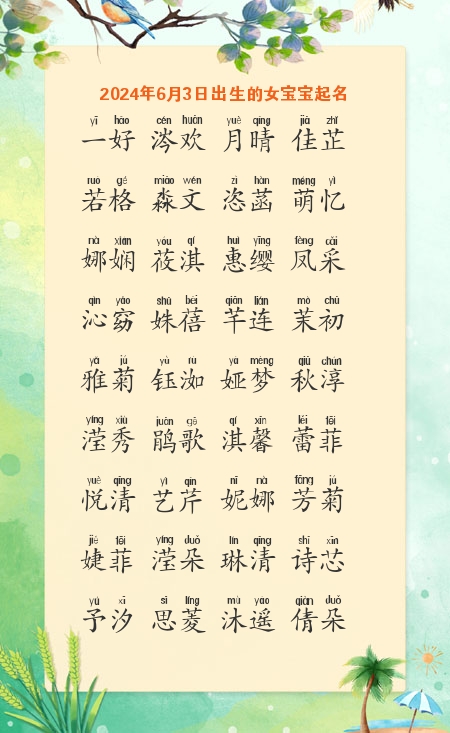 2024年6月3日出生的女宝宝起名
yī hǎo cén huān yuè qíng jiā zhǐ
一好 涔欢 月晴 佳芷
ruò gé miǎo wén zì hàn méng yì
若格 淼文 恣菡 萌忆
nà xián yóu qí huì yīng fèng cǎi
娜娴 莜淇 惠缨 凤采
qìn yǎo shū bèi qiān lián mò chū
沁窈 姝蓓 芊连 茉初
yǎ jú yù rú yà mèng qiū chún
雅菊 钰洳 娅梦 秋淳
yíng xiù juān gē qí xīn lěi fēi
滢秀 鹃歌 淇馨 蕾菲
yuè qīng yì qín nī nà fāng jú
悦清 艺芹 妮娜 芳菊
jié fēi yíng duǒ lín qīng shī xīn
婕菲 滢朵 琳清 诗芯
yú xī sī líng mù yáo qiàn duǒ
予汐 思菱 沐遥 倩朵